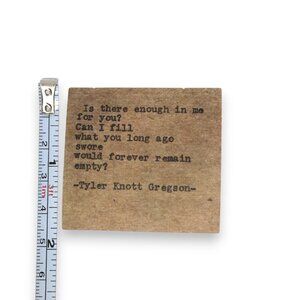 Is there enough in me
for you?
Can I fill
what you long ago
swore
would forever remain
empty?
-Tyler Knott Gregson-
1
2
1m
3ft
1
2